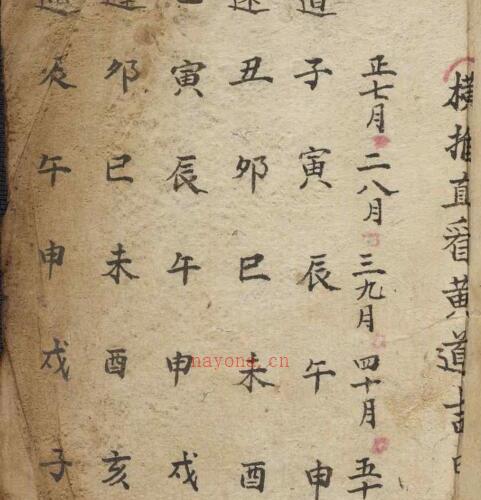 橫推直看黃道吉
正七月 二八月 三九月 四十月 五十
道 子 寅 辰 午 申
丑 卯 巳 未 酉
寅 辰 午 申 戌
卯 巳 未 酉 亥
辰 午 申 戌 子
nayona.cn